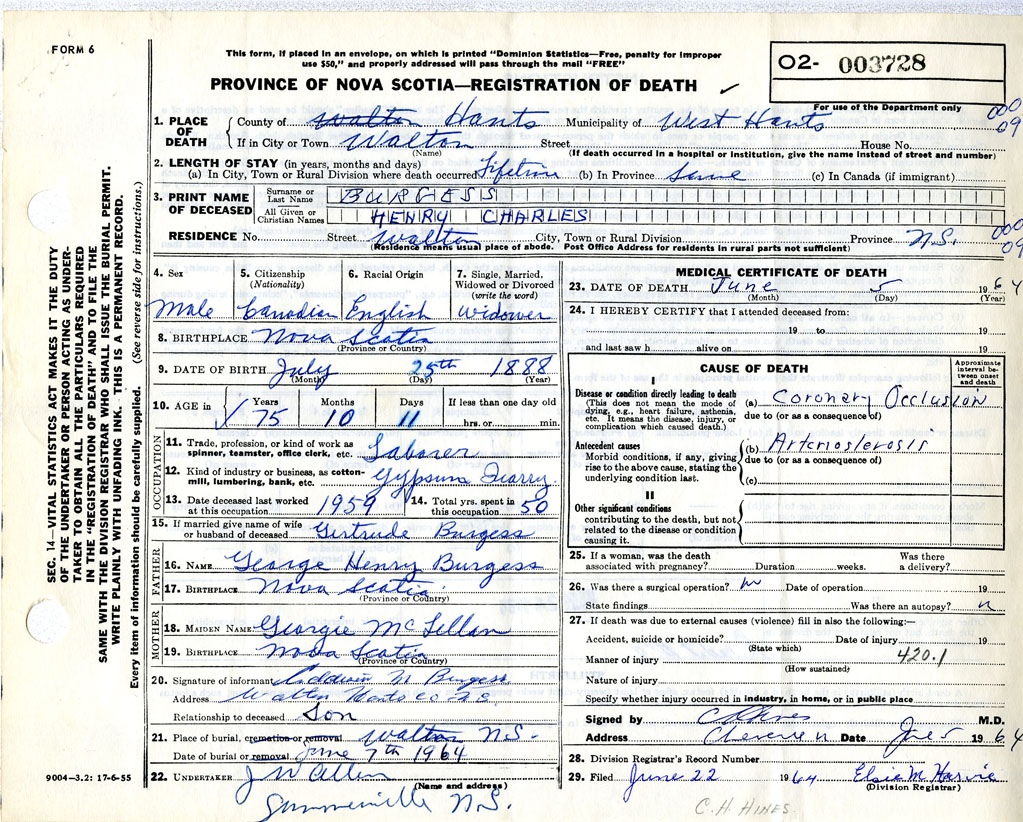 FORM 6
This form, if placed in an envelope, on which is printed "Dominion Statistics—Free, penalty for improper
use $50," and properly addressed will pass through the mail "FREE"
PROVINCE OF NOVA SCOTIA—REGISTRATION OF DEATH ✓
O2- 003728
For use of the Department only
000
09
1. PLACE OF DEATH
County of Walton Hants Municipality of West Hants
If in City or Town Walton Street House No.
(Name) (If death occurred in a hospital or institution, give the name instead of street and number)
2. LENGTH OF STAY (in years, months and days)
(a) In City, Town or Rural Division where death occurred Lifetime (b) In Province Same (c) In Canada (if immigrant)
3. PRINT NAME OF DECEASED
Surname or Last Name BURGESS
All Given or Christian Names HENRY CHARLES
RESIDENCE No. Street Walton City, Town or Rural Division Province N.S.
000
09
(Residence means usual place of abode. Post Office Address for residents in rural parts not sufficient)
4. Sex
Male
5. Citizenship
(Nationality)
Canadian
6. Racial Origin
English
7. Single, Married,
Widowed or Divorced
(write the word)
Widower
8. BIRTHPLACE Nova Scotia
(Province or Country)
9. DATE OF BIRTH July 25th 1888
(Month) (Day) (Year)
10. AGE in Years Months Days If less than one day old
75 10 11 hrs. or min.
OCCUPATION
11. Trade, profession, or kind of work as
spinner, teamster, office clerk, etc. Laborer
12. Kind of industry or business, as cotton-
mill, lumbering, bank, etc. Gypsum Quarry
13. Date deceased last worked
at this occupation 1959
14. Total yrs. spent in
this occupation 50
15. If married give name of wife
or husband of deceased Gertrude Burgess
FATHER
16. NAME George Henry Burgess
17. BIRTHPLACE Nova Scotia
(Province or Country)
MOTHER
18. MAIDEN NAME Georgie McLellan
19. BIRTHPLACE Nova Scotia
(Province or Country)
20. Signature of informant M Burgess
Address Walton Hants Co
Relationship to deceased Son
21. Place of burial, cremation or removal Walton N.S.
Date of burial or removal June 7th 1964
22. UNDERTAKER J W Allen
(Name and address)
Summerville N.S.
9004—3.2: 17-6-55
MEDICAL CERTIFICATE OF DEATH
23. DATE OF DEATH June 5 1964
(Month) (Day) (Year)
24. I HEREBY CERTIFY that I attended deceased from:
19 to 19
and last saw h alive on 19
CAUSE OF DEATH
Approximate
interval be-
tween onset
and death
I
Disease or condition directly leading to death
(This does not mean the mode of
dying, e.g., heart failure, asthenia,
etc. It means the disease, injury, or
complication which caused death.)
(a) Coronary Occlusion
due to (or as a consequence of)
Antecedent causes
Morbid conditions, if any, giving
rise to the above cause, stating the
underlying condition last.
(b) Arteriosclerosis
due to (or as a consequence of)
(c)
II
Other significant conditions
contributing to the death, but not
related to the disease or condition
causing it.
25. If a woman, was the death
associated with pregnancy? Duration weeks. Was there
a delivery?
26. Was there a surgical operation? Date of operation 19
State findings Was there an autopsy?
27. If death was due to external causes (violence) fill in also the following:—
Accident, suicide or homicide? Date of injury 19
(State which)
420.1
Manner of injury
(How sustained)
Nature of injury
Specify whether injury occurred in industry, in home, or in public place
Signed by CHHines M.D.
Address Date June 5 1964
28. Division Registrar's Record Number
29. Filed June 22 1964 Elsie M Harvie
(Division Registrar)
C.H HINES
SEC. 14—VITAL STATISTICS ACT MAKES IT THE DUTY
OF THE UNDERTAKER OR PERSON ACTING AS UNDER-
TAKER TO OBTAIN ALL THE PARTICULARS REQUIRED
IN THE "REGISTRATION OF DEATH" AND TO FILE THE
SAME WITH THE DIVISION REGISTRAR WHO SHALL ISSUE THE BURIAL PERMIT.
WRITE PLAINLY WITH UNFADING INK. THIS IS A PERMANENT RECORD.
Every item of information should be carefully supplied. (See reverse side for instructions.)